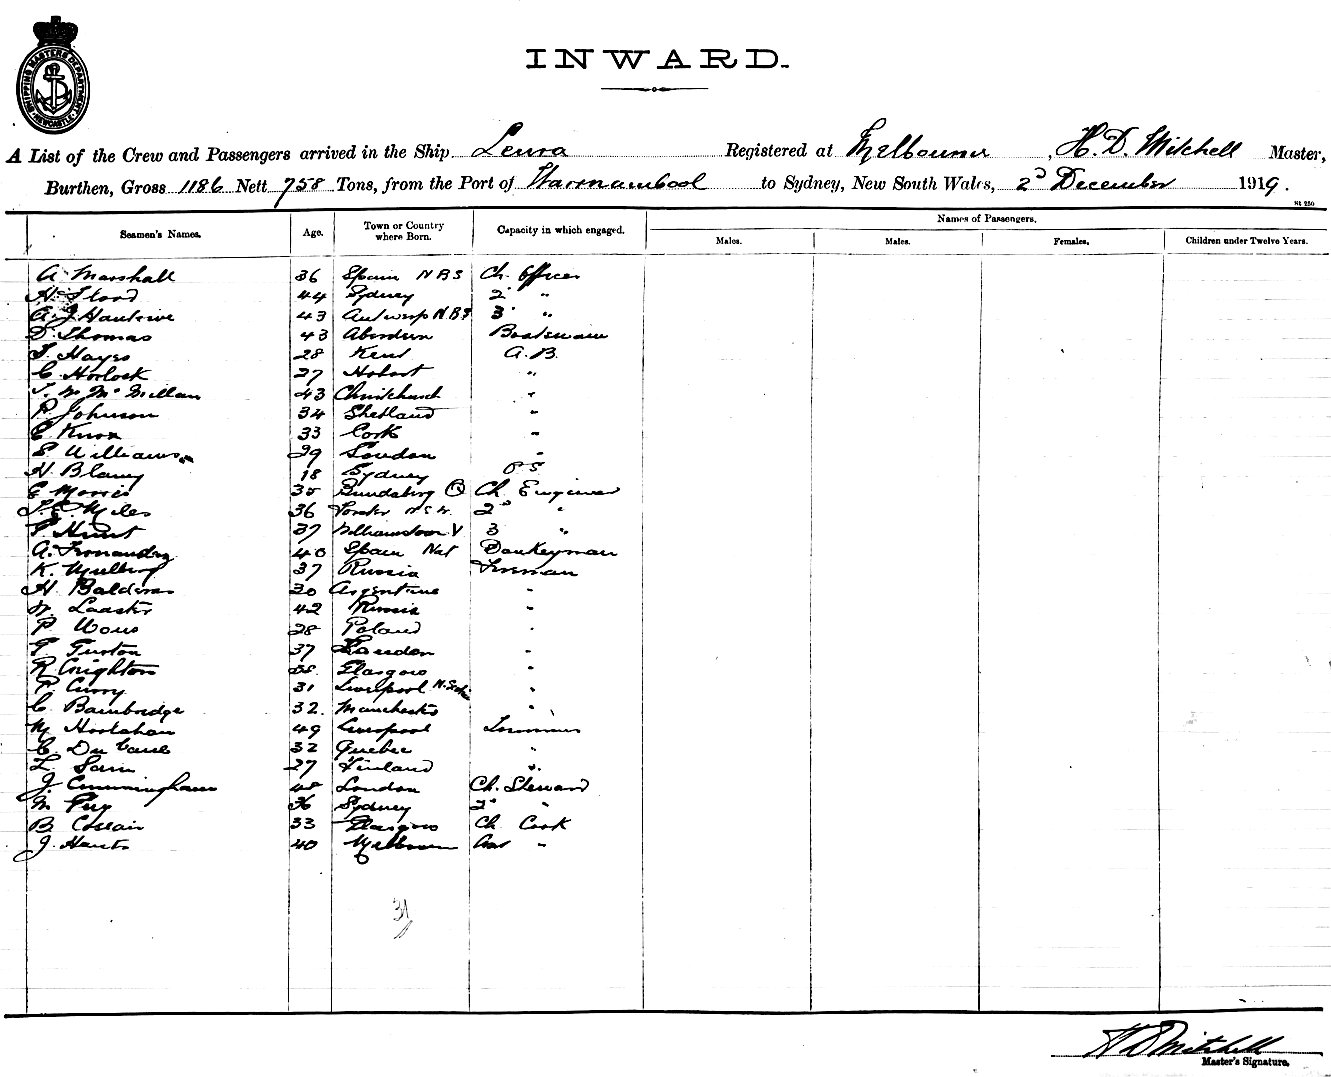 SHIPPING MASTERS DEPARTMENT NEWCASTLE
INWARD.
A List of the Crew and Passengers arrived in the Ship Leura Registered at Melbourne, H. D. Mitchell Master,
Burthen, Gross 1186 Nett 758 Tons, from the Port of Warrnambool to Sydney, New South Wales, 2d December 1919.
St 250
Seamen's Names. Age. Town or Country where Born. Capacity in which engaged. Names of Passengers.
Males. Males. Females. Children under Twelve Years.
A. Marshall 36 Spain N B S Ch. Officer
H. Flood 44 Sydney 2d "
A. J. 43 Antwerp N.B.S 3d "
D. Thomas 43 Aberdeen Boatswain
T. Hayes 28 Kent A.B.
C. Horlock 27 Hobart "
T. W. McMillan 43 Christchurch "
P. Johnson 34 Shetland "
E. Knox 33 Cork "
P. Williams 29 London "
H. Blamy 18 Sydney O S
E Morris 35 Bundaberg Q Ch. Engineer
T. E. Myles 36 N.S.W. 2d "
T. Hunt 37 Williamstown V 3 "
A. Fernandez 40 Spain Nat Donkeyman
K. Mulberg 37 Russia Fireman
H. 30 Argentine "
W. 42 Russia "
P. 28 Poland "
T. Turton 37 London "
R Crighton Glasgow "
P. Curry 31 Liverpool "
C. Bambridge 32. Manchester "
M Hoolahan 49 Liverpool
C. Du 32 Quebec "
L. 27 Finland "
J. Cunningham 48 London Ch. Steward
W. 36 Sydney 2d "
B 33 Glasgow Ch Cook
J. 40 Melbourne "
31
H D Mitchell
Master's Signature.